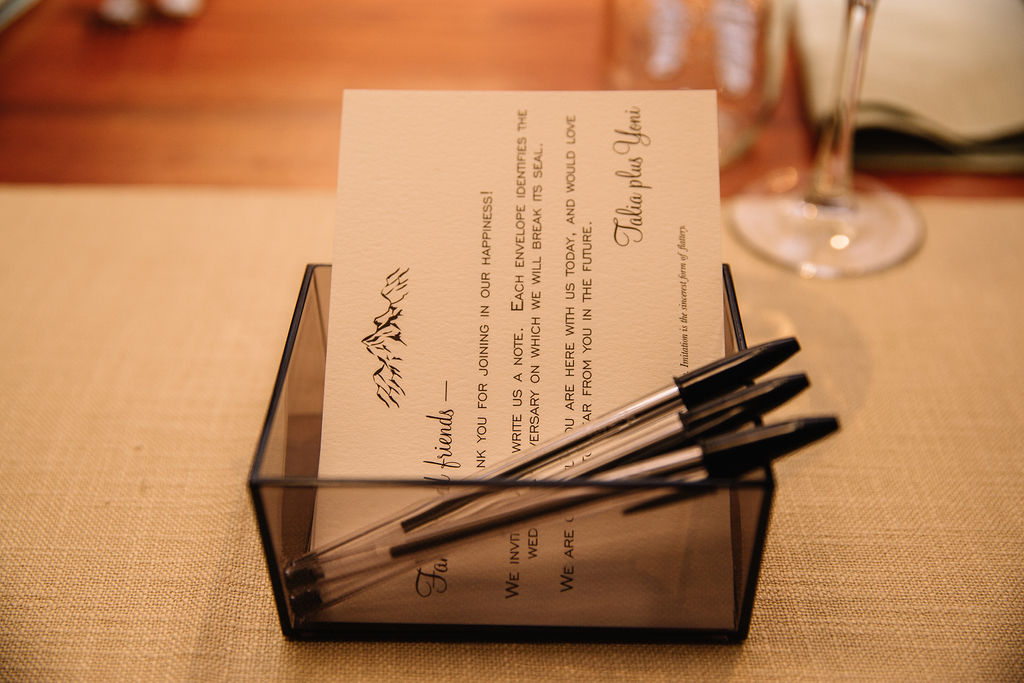 friends —
NK YOU FOR JOINING IN OUR HAPPINESS!
WE INVIT WRITE US A NOTE. EACH ENVELOPE IDENTIFIES THE
WED VERSARY ON WHICH WE WILL BREAK ITS SEAL.
WE ARE OU ARE HERE WITH US TODAY, AND WOULD LOVE
FAR FROM YOU IN THE FUTURE.
Talia plus Yoni
Imitation is the sincerest form of flattery.